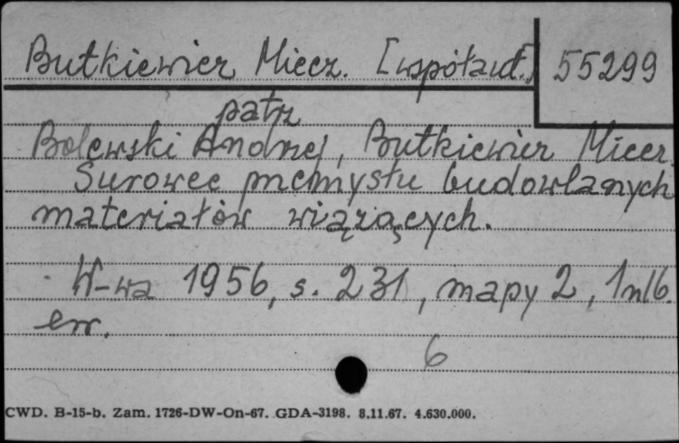 Butkiewicz Miecz. [współaut.] 55299
patrz
Bolewski Andrzej, Butkiewicz Miecz.
Surowce przemysłu budowlanych
materiałów wiążących.
W-wa 1956, s. 231, mapy 2, 1 nlb.
err.
6
CWD. B-15-b. Zam. 1726-DW-On-67. GDA-3198. 8.11.67. 4.630.000.